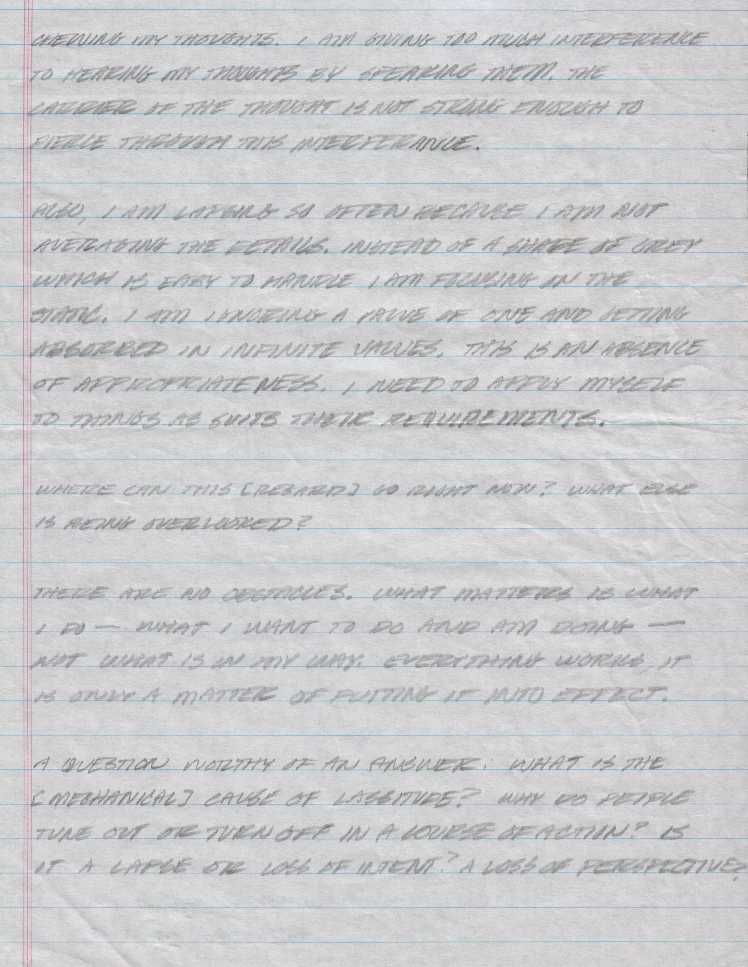 CHEWING MY THOUGHTS. I AM GIVING TOO MUCH INTERFERENCE
TO HEARING MY THOUGHTS BY SPEAKING THEM. THE
CARRIER OF THE THOUGHT IS NOT STRONG ENOUGH TO
PIERCE THROUGH THIS INTERFERANCE.
ALSO, I AM LAPSING SO OFTEN BECAUSE I AM NOT
AVERAGING THE DETAILS. INSTEAD OF A SHADE OF GREY
WHICH IS EASY TO HANDLE I AM FOCUSING ON THE
STATIC. I AM IGNORING A VALUE OF ONE AND GETTING
ABSORBED IN INFINITE VALUES. THIS IS AN ABSENCE
OF APPROPRIATENESS. I NEED TO APPLY MYSELF
TO THINGS AS SUITS THEIR REQUIREMENTS.
WHERE CAN THIS [REGARD] GO RIGHT NOW? WHAT ELSE
IS BEING OVERLOOKED?
THERE ARE NO OBSTACLES. WHAT MATTERS IS WHAT
I DO — WHAT I WANT TO DO AND AM DOING —
NOT WHAT IS IN MY WAY. EVERYTHING WORKS, IT
IS ONLY A MATTER OF PUTTING IT INTO EFFECT.
A QUESTION WORTHY OF AN ANSWER: WHAT IS THE
[MECHANICAL] CAUSE OF LASSITUDE? WHY DO PEOPLE
TUNE OUT OR TURN OFF IN A COURSE OF ACTION? IS
IT A LAPSE OR LOSS OF INTENT? A LOSS OF PERSPECTIVE?